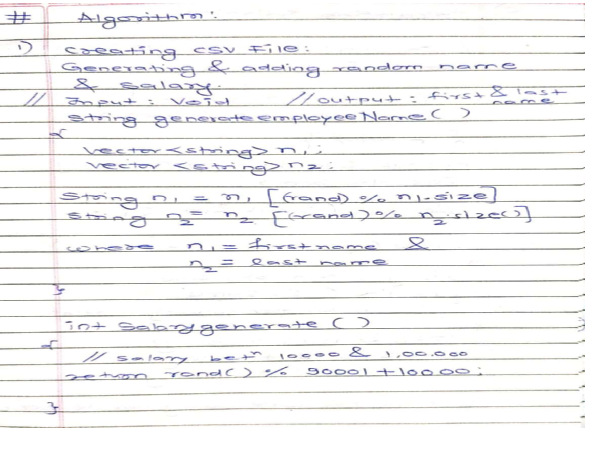 # Algorithm:
1) Creating CSV File:
Generating & adding random name
& salary.
// Input : Void // output : first & last name
string generateemployeeName ( )
{
vector <string> n1 ;
vector <string> n2 ;
String n1 = n1 [(rand) % n1.size]
string n2 = n2 [(rand) % n2.size()]
where n1 = first name &
n2 = last name
}
int Salarygenerate ( )
{
// salary betn 10000 & 1,00,000
return rand() % 90001 + 10000;
}